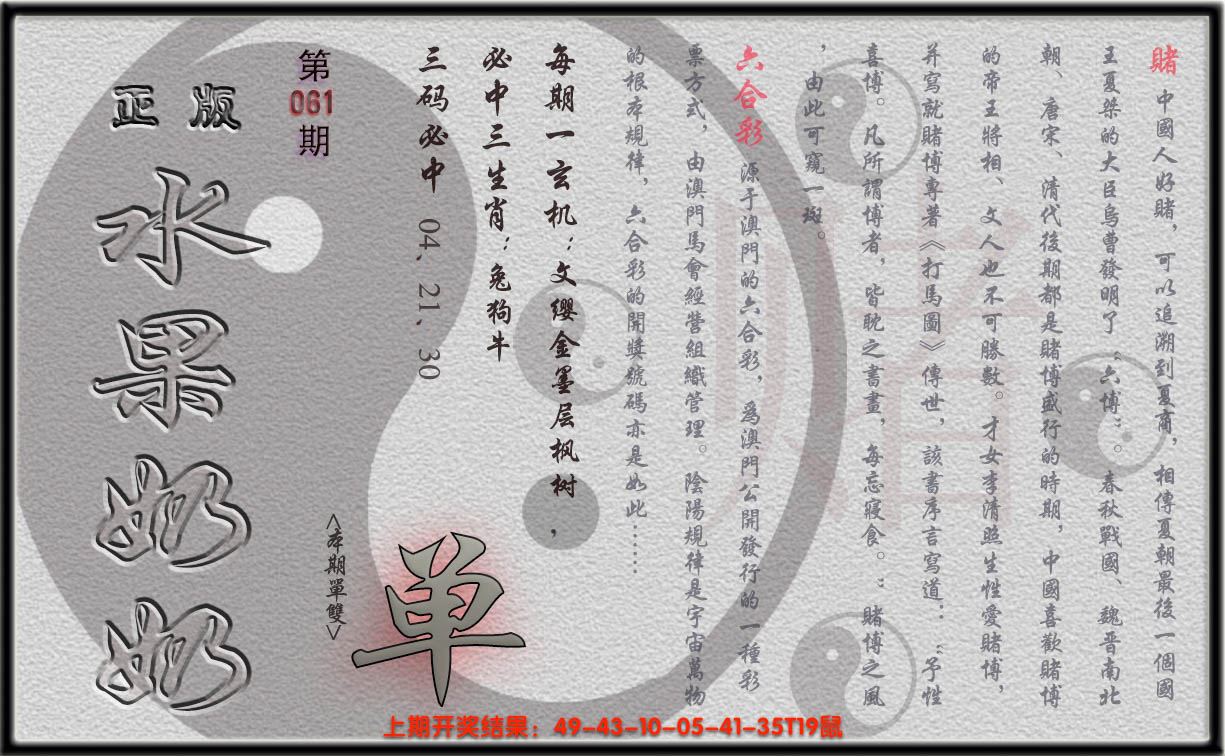 賭 中國人好賭，可以追溯到夏商，相傳夏朝最後一個國
王夏桀的大臣烏曹發明了“六博”。春秋戰國、魏晉南北
朝、唐宋、清代後期都是賭博盛行的時期，中國喜歡賭博
的帝王將相、文人也不可勝數。才女李清照生性愛賭博，
并寫就賭博專著《打馬圖》傳世，該書序言寫道：“予性
喜博。凡所謂博者，皆耽之書畫，每忘寢食。”賭博之風
，由此可窺一斑。
六合彩 源于澳門的六合彩，為澳門公開發行的一種彩
票方式，由澳門馬會經營組織管理。陰陽規律是宇宙萬物
的根本規律，六合彩的開獎號碼亦是如此……
每期一玄机：文缨金墨层枫树，
必中三生肖：兔狗牛
三码必中 04、21、30
<本期單雙>
单
第
061
期
正版
水果奶奶
上期开奖结果：49-43-10-05-41-35T19鼠